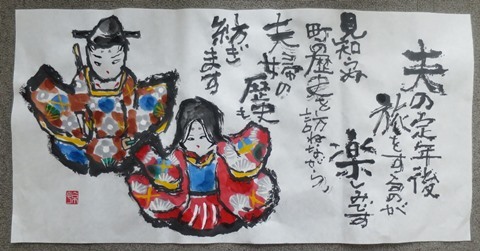 夫の定年後
旅をするのが
楽しみです
見知らぬ
町の歴史を訪ねながら
夫婦の
歴史も
紡ぎます